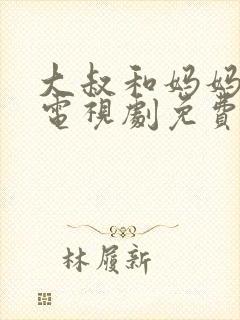 大叔和妈妈
電視劇免費
林履新